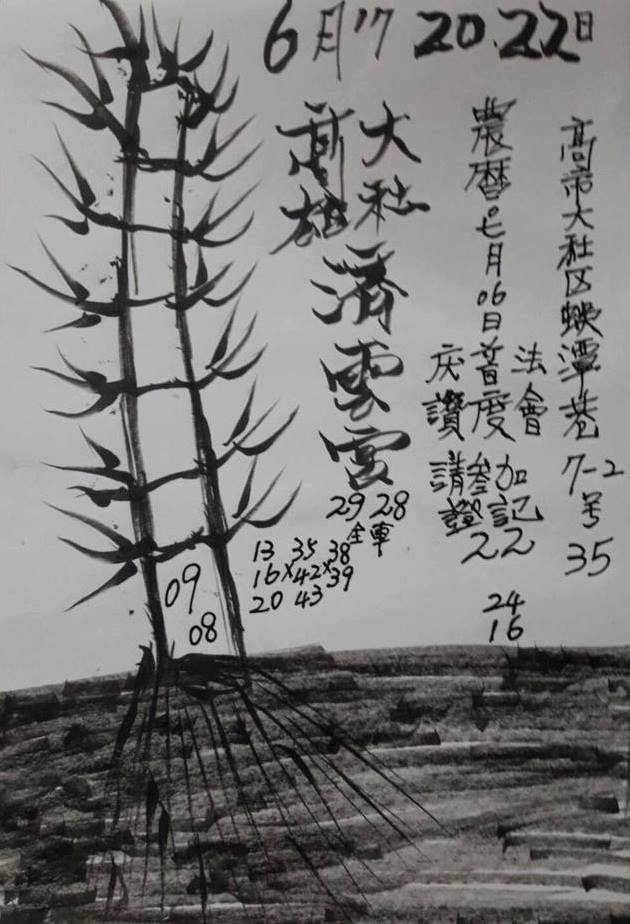 6月17 20.22日
高市大社区潭巷7-2号
35
農曆七月06日
庆普法
讚度會
請參加
證記
22
24
16
大社
高雄
濟雲宮
29 28
全車
13 35 38
16×42×39
20 43
09
08